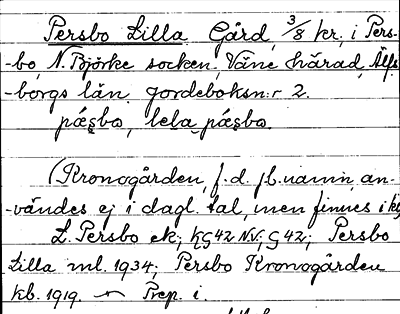 Persbo Lilla Gård, 3/8 kr, i Pers-
-bo, N. Björke socken, Väne härad, Älfs-
-borgs län. Jordeboksn:r 2.
pǽsbo, lela pǽsbo.
(Kronogården, f.d. jb.namn, an-
-vändes ej i dagl. tal, men finnes i kb,
L. Persbo ek; KG42 NV; G42; Persbo
Lilla ml. 1934; Persbo Kronogården
kb. 1919. Prep. i.